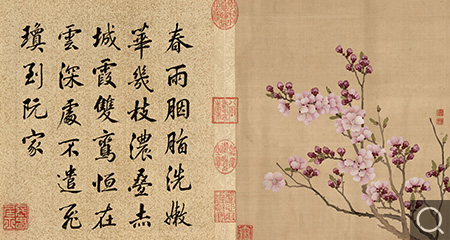 春雨胭脂洗嫩
華幾枝濃疊赤
城霞雙鸞恒在
雲深處不遣飛
瓊到阮家